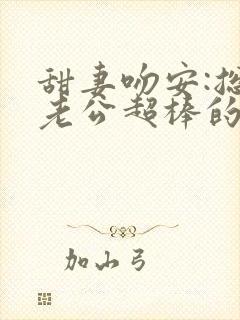 甜妻吻安:总
老公超棒的
加小弓